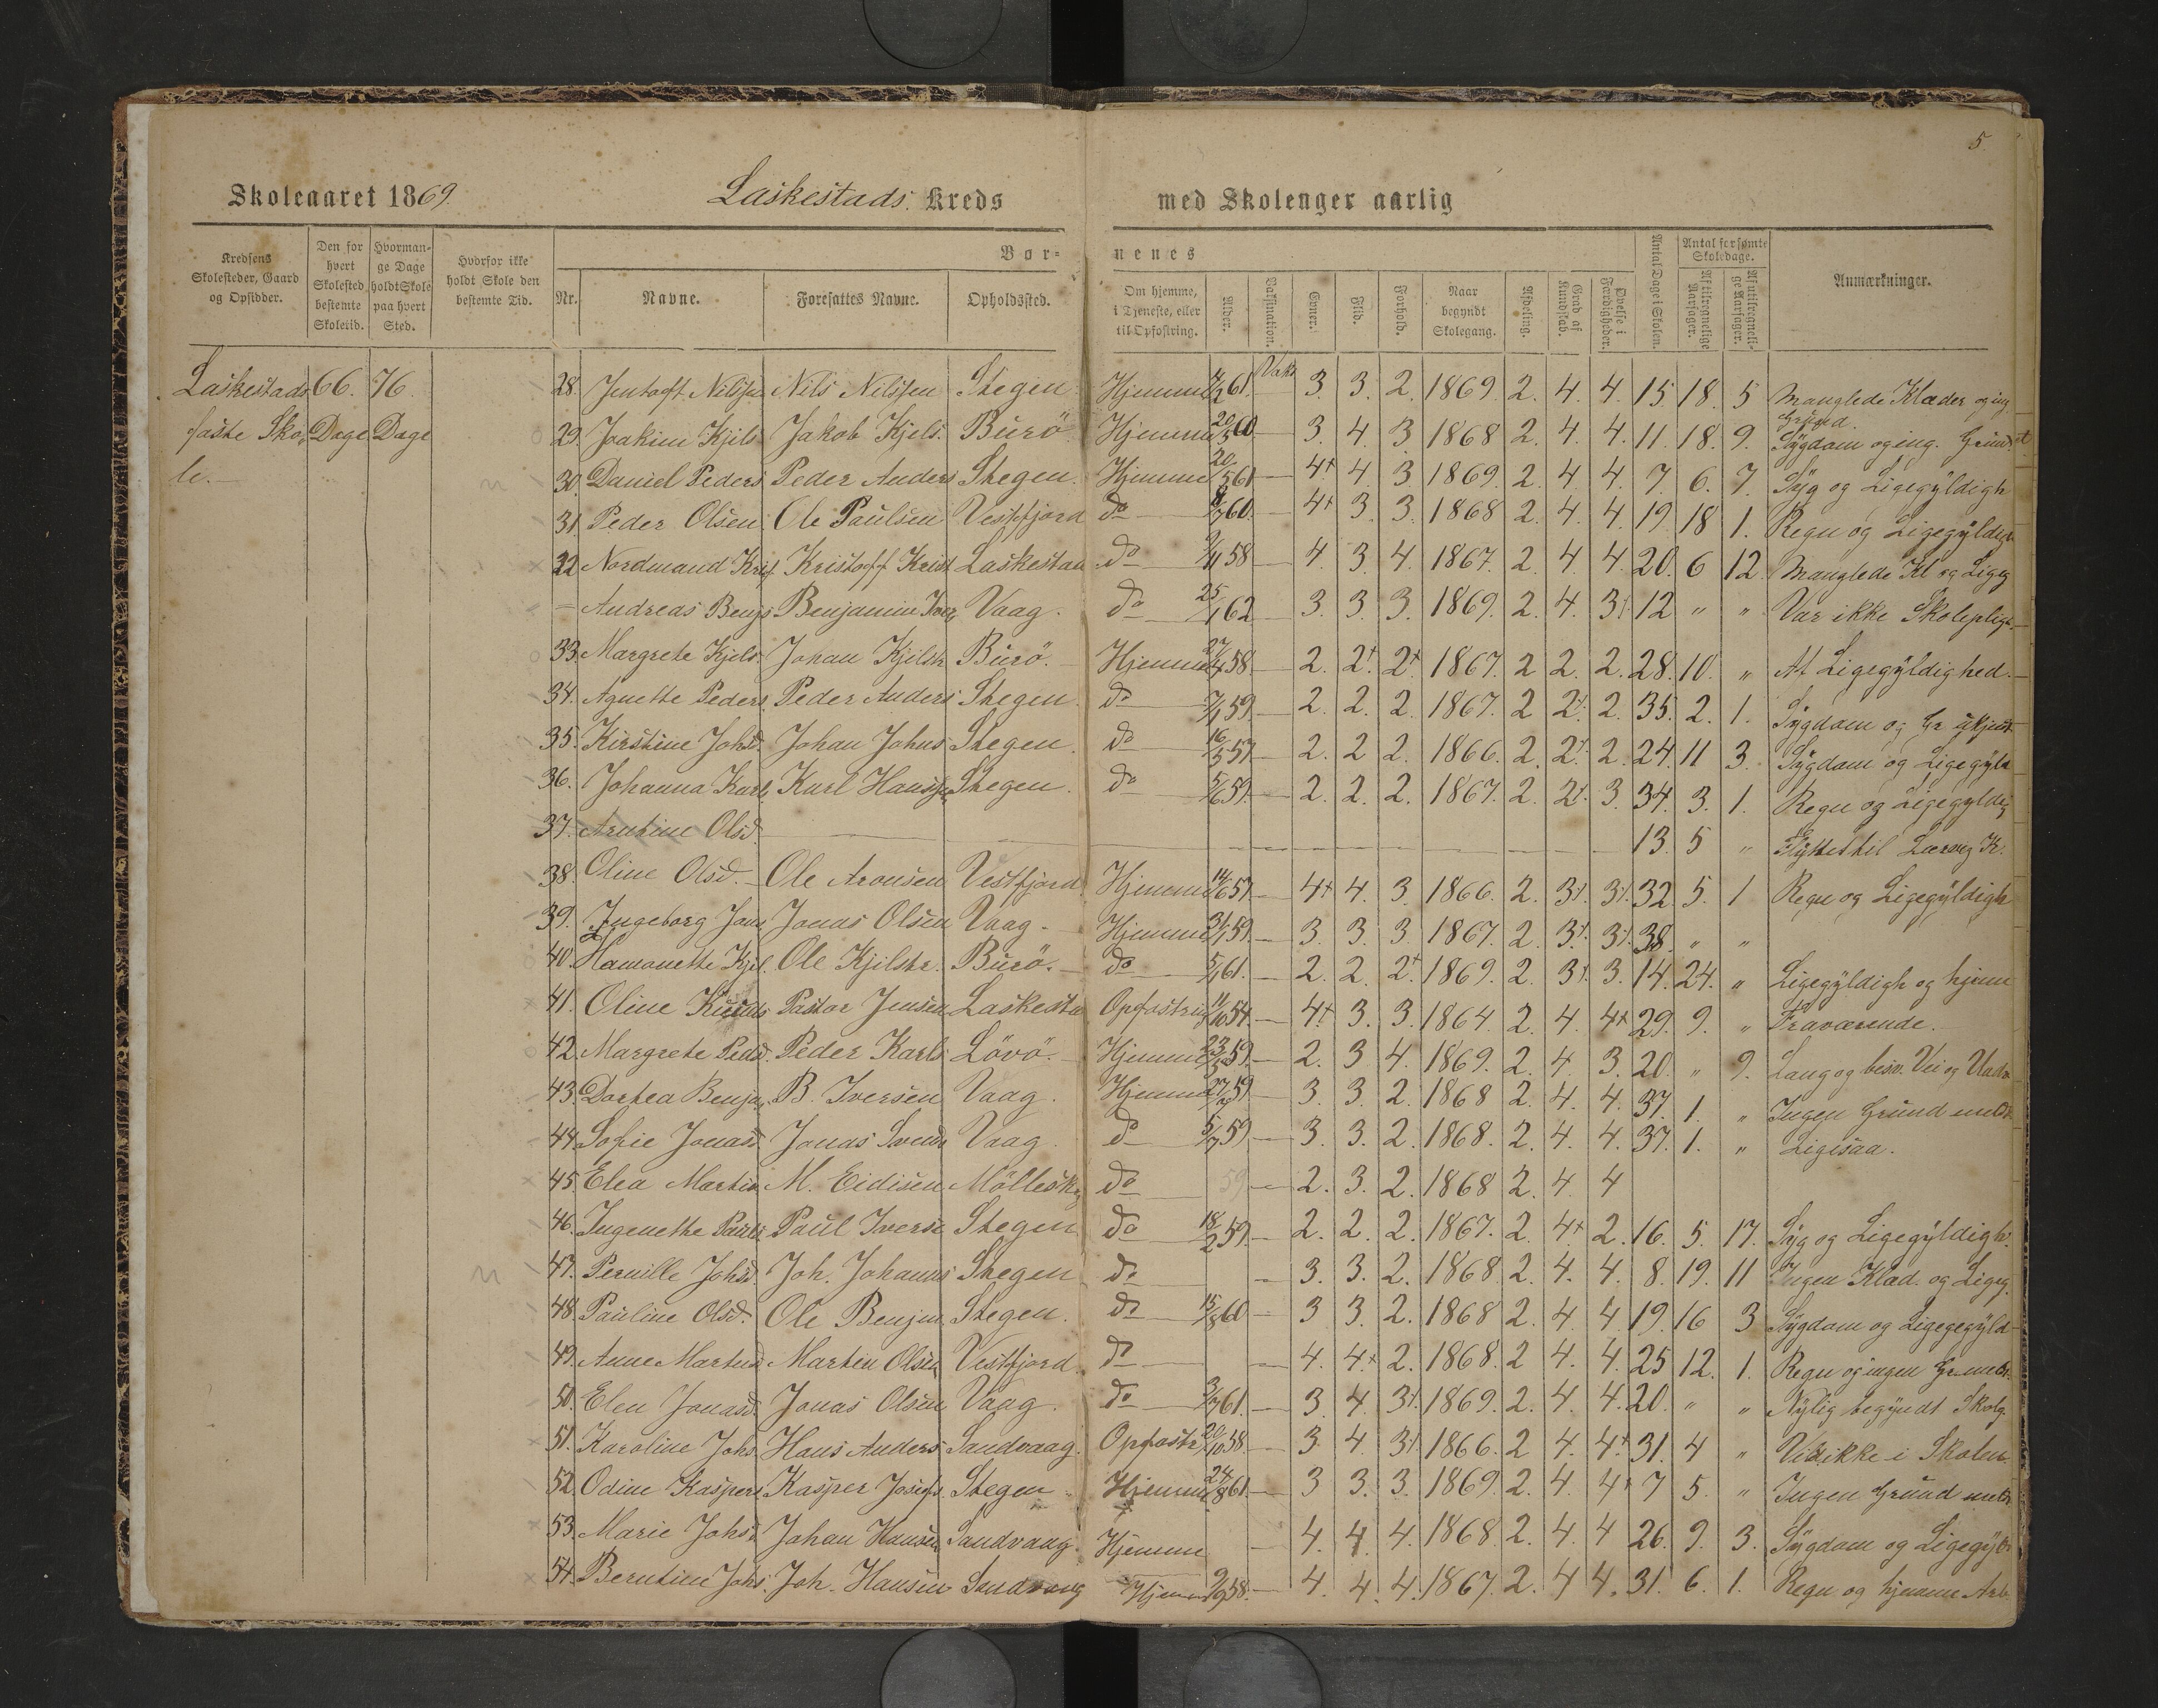 5
Skoleaaret 1869. Laskestads Kreds med Skolenger aarlig
Kredsens Skolesteder, Gaard og Opsidder.
Den for hvert Skolested bestemte Skoletid.
Hvormange Dage holdt Skole paa hvert Sted.
Hvorfor ikke holdt Skole den bestemte Tid.
Bør- nenes
Nr. Navne. Foresattes Navne. Opholdssted.
Om hjemme, i Tjeneste, eller til Opfostring.
Alder. Vaksination. Evner. Flid. Forhold.
Naar begyndt Skolegang.
Afdeling. Grad af Kundskab. Øvelse i Færdigheder. Antal Dage i Skolen.
Antal forsømte Skoledage.
Af tilregnelige Aarsager. Af utilregnelige Aarsager.
Anmærkninger.
Laskestads 66. 76.
faste Sko, Dage Dage
le.
28. Jentoft Nilsse Nils Nilssen Stegen Hjemme 61. Vaks 3. 3. 2. 1869. 2. 4. 4. 15. 18. 5 Manglede Klæder og ing. Grund.
29. Joakim Kjels Jakob Kjels. Burö. Hjemme 60 — 3. 4. 3 1868 2. 4. 4. 11. 18. 9. Sygdom og ing. Grund
30. Daniel Peders Peder Anders Stegen. Hjemme 20/5 61 — 4+ 4. 3 1869. 2. 4. 4. 7. 6. 7. Syg og Ligegyldigh
31. Peder Olsen. Ole Paulsen Vestfjord do 60. — 4+ 3. 3. 1868 2. 4. 4. 19. 18 1. Regn og Ligegyldigh
32. Nordmand Krist. Kristoff Krist Laskestad do 58 — 4. 3 4. 1867. 2. 4. 4. 20. 6 12. Manglede Kl og Ligeg
— Andreas Benjs Benjamin Iver, Vaag. do 25/1 62 3. 3. 3. 1869. 2. 4. 3. 12 " " Var ikke Skolepligt.
33. Margrete Kjels. Johan Kjilstr. Burö. Hjemme 27/4 58 — 2. 2+ 2+ 1867. 2 2. 2. 28. 10. " Af Ligegyldighed.
34. Agnette Peders. Peder Anders Stegen do 59. — 2. 2. 2. 1867. 2 2. 2. 35. 2. 1. Sygdom og Gr ukjendt
35. Kirstine Johsd. Johan Johns Stegen. do 16/5 57. — 2. 2 2. 1866. 2. 2. 2. 24. 11 3. Sygdom og Ligegyld
36. Johanna Karls Karl Hanssen Stegen. do 5/6 59. — 2. 2. 2. 1867. 2. 2. 3. 34. 3. 1. Regn og Ligegyldig
37. Arntine Olsd. 13. 5 " Flyttet til K.
38. Oline Olsd. — Ole Aronsen Vestfjord. Hjemme 14/6 57 — 4+ 4. 3. 1866. 2. 3. 3. 32. 5. 1 Regn og Ligegyldigh
39. Ingeborg Jons Jonas Olsen Vaag. Hjemme 59. — 3. 3. 3. 1867. 2. 3. 3. 38. " "
40. Hamonette Kjel. Ole Kjilstr. Burö. do 5/1 61. — 2. 2. 2+ 1869. 2. 3. 3. 14. 24. " Ligegyldigh og hjem
41. Oline Knuds Pastor Jensen Laskesta Opfostrin 11/10 54. — 4+ 3. 3. 1864. 2. 4. 4+ 29. 9. " Fraværende.
42. Margrete Pedsd. Peder Karls Lövö. Hjemme 59. — 2. 3 4. 1869. 2. 4. 3. 20. " 9. Lang og besv. Vei og
43. Dortea Benja, B. Iversen Vaag. Hjemme 59 — 3. 3. 2. 1868 2. 4. 4. 37. 1. " Ingen Grund meldt.
44. Sofie Jonasd Jonas Svends Vaag. do 5/7 59. — 3. 3. 2. 1868. 2. 4. 4. 37. 1. " Ligesaa.
45. Elea Martin. M. Eidisen Mölleskg do 59 — 2. 3. 2. 1868 2. 4. 4
46. Ingenette Pauls. Paul Iverse Stegen do 18/2 59. — 2. 2. 2. 1867. 2. 4+ 2. 16. 5. 17. Syg og Ligegyldigh.
47. Pernille Johsd. Joh. Johanns Stegen do — 3. 3. 2. 1868 2. 4. 4. 8. 19. 11 Ingen Klæd. og Ligeg.
48. Pauline Olsd. Ole Benjm. Stegen. do 15/8 60 — 3 3. 2. 1868 2. 4. 4 19. 16 3 Sygdom og Ligegegyld
49. Anne Martsd. Martin Olsen Vestfjord. do — 4. 4+ 2. 1868. 2 4. 4. 25 12. 1. Regn og ingen Gr. meldt.
50. Elen Jonasd. Jonas Olsen Vaag. do 3/7 61. — 3 4. 3. 1869. 2. 4. 4. 20. " " Nylig begyndt Skolg
51. Karoline Johs. Hans Anders Sandvaag. Opfostr. 20/10 58. — 3. 4. 3. 1866. 2 4. 4+ 31. 4 " Vid ikke i Skolen.
52. Odine Kaspers Kasper Josefs. Stegen. Hjemme 24/8 61. — 3 3. 3. 1869. 2. 4. 4+ 7 5. " Ingen Grund meldt
53. Marie Johsd. Johan Hansen Sandvaag. Hjemme — 4. 4. 4. 1868. 2. 4. 4 26. 9. 3. Sygdom og Ligegyld
54. Berntine Johs. Joh. Hansen Sandvaag Hjemme 9/9 58. — 4. 4. 4. 1867. 2. 4 4. 31. 6. 1. Regn og hjemme Arb